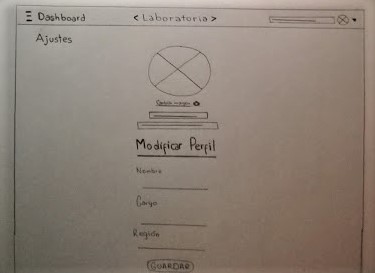 Dashboard
< Laboratoria >
Ajustes
Cambiar imagen
Modificar Perfil
Nombre
Cargo
Región
GUARDAR